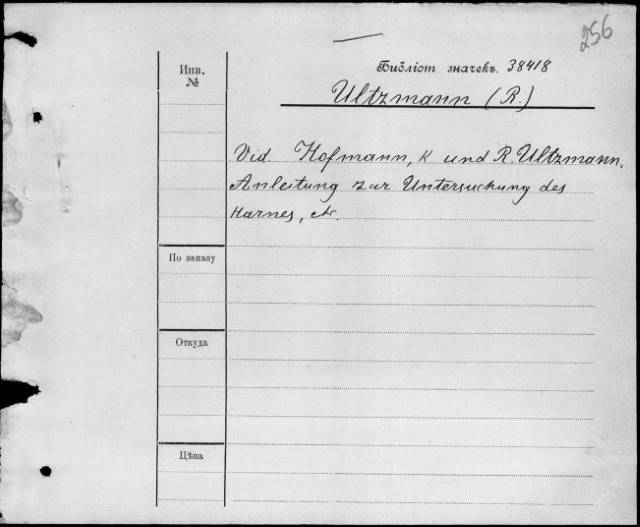 256
Инв. №
Библіот. значекъ. 38418
Ultzmann (R.)
Vid. Hofmann, K und R. Ultzmann.
Anleitung zur Untersuchung des
Harnes, etc.
По заказу
Откуда
Цѣна